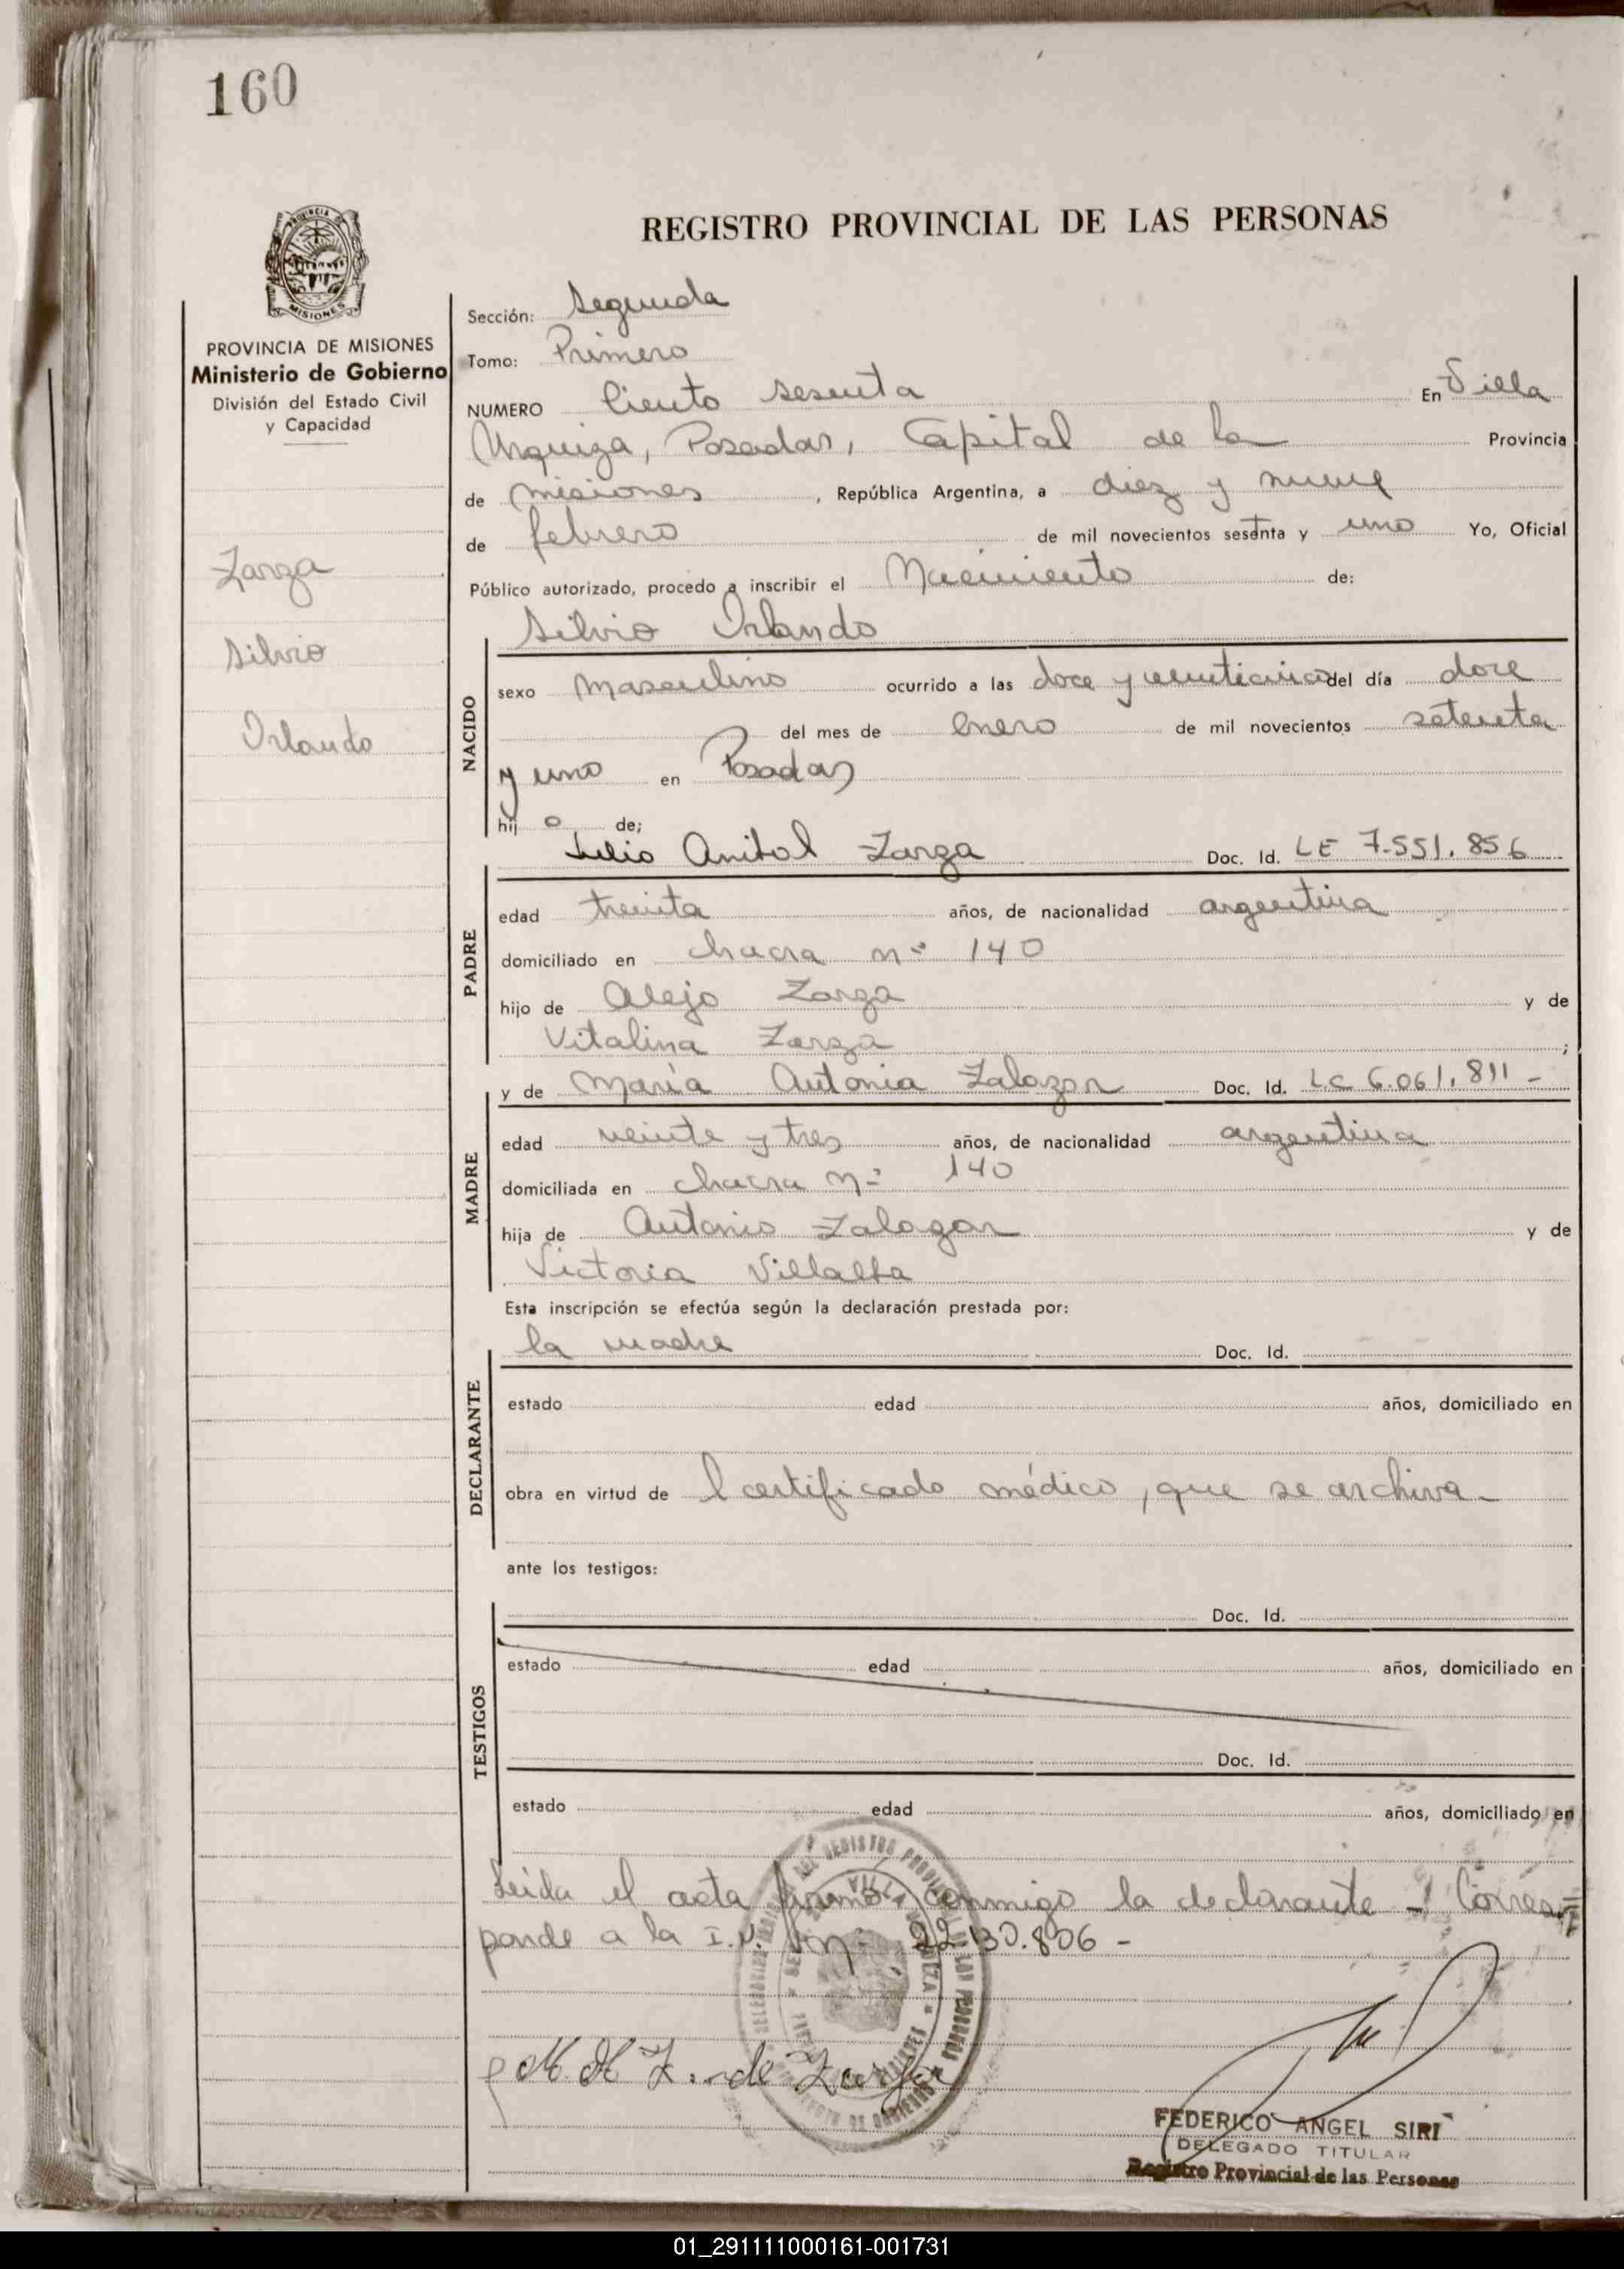 160
REGISTRO PROVINCIAL DE LAS PERSONAS
PROVINCIA DE MISIONES
Ministerio de Gobierno
División del Estado Civil
y Capacidad
Zarza
Silvio
Orlando
Sección: Segunda
Tomo: Primero
NUMERO Ciento sesenta En Villa
Urquiza, Posadas, Capital de la Provincia
de Misiones, República Argentina, a diez y nueve
de febrero de mil novecientos setenta y uno Yo, Oficial
Público autorizado, procedo a inscribir el Nacimiento de:
Silvio Orlando
NACIDO
sexo Masculino ocurrido a las doce y veinticinco del día doce
del mes de Enero de mil novecientos setenta
y uno en Posadas
hijo de;
Julio Anibal Zarza Doc. Id. LE 7.551.856
PADRE
edad treinta años, de nacionalidad argentina
domiciliado en chacra nº 140
hijo de Alejo Zarza y de
Vitalina Zarza ;
y de María Antonia Zalazar Doc. Id. LC 6.061.811 -
MADRE
edad veinte y tres años, de nacionalidad argentina
domiciliada en chacra nº 140
hija de Antonio Zalazar y de
Victoria Villalba
Esta inscripción se efectúa según la declaración prestada por:
la madre Doc. Id.
DECLARANTE
estado edad años, domiciliado en
obra en virtud de l certificado médico, que se archiva -
ante los testigos:
Doc. Id.
TESTIGOS
estado edad años, domiciliado en
Doc. Id.
estado edad años, domiciliado en
Leida el acta firmó conmigo la declarante - Corres-
ponde a la I.N. nº 22.130.806 -
de Zarza
FEDERICO ANGEL SIRI
DELEGADO TITULAR
Registro Provincial de las Personas
01_291111000161-001731